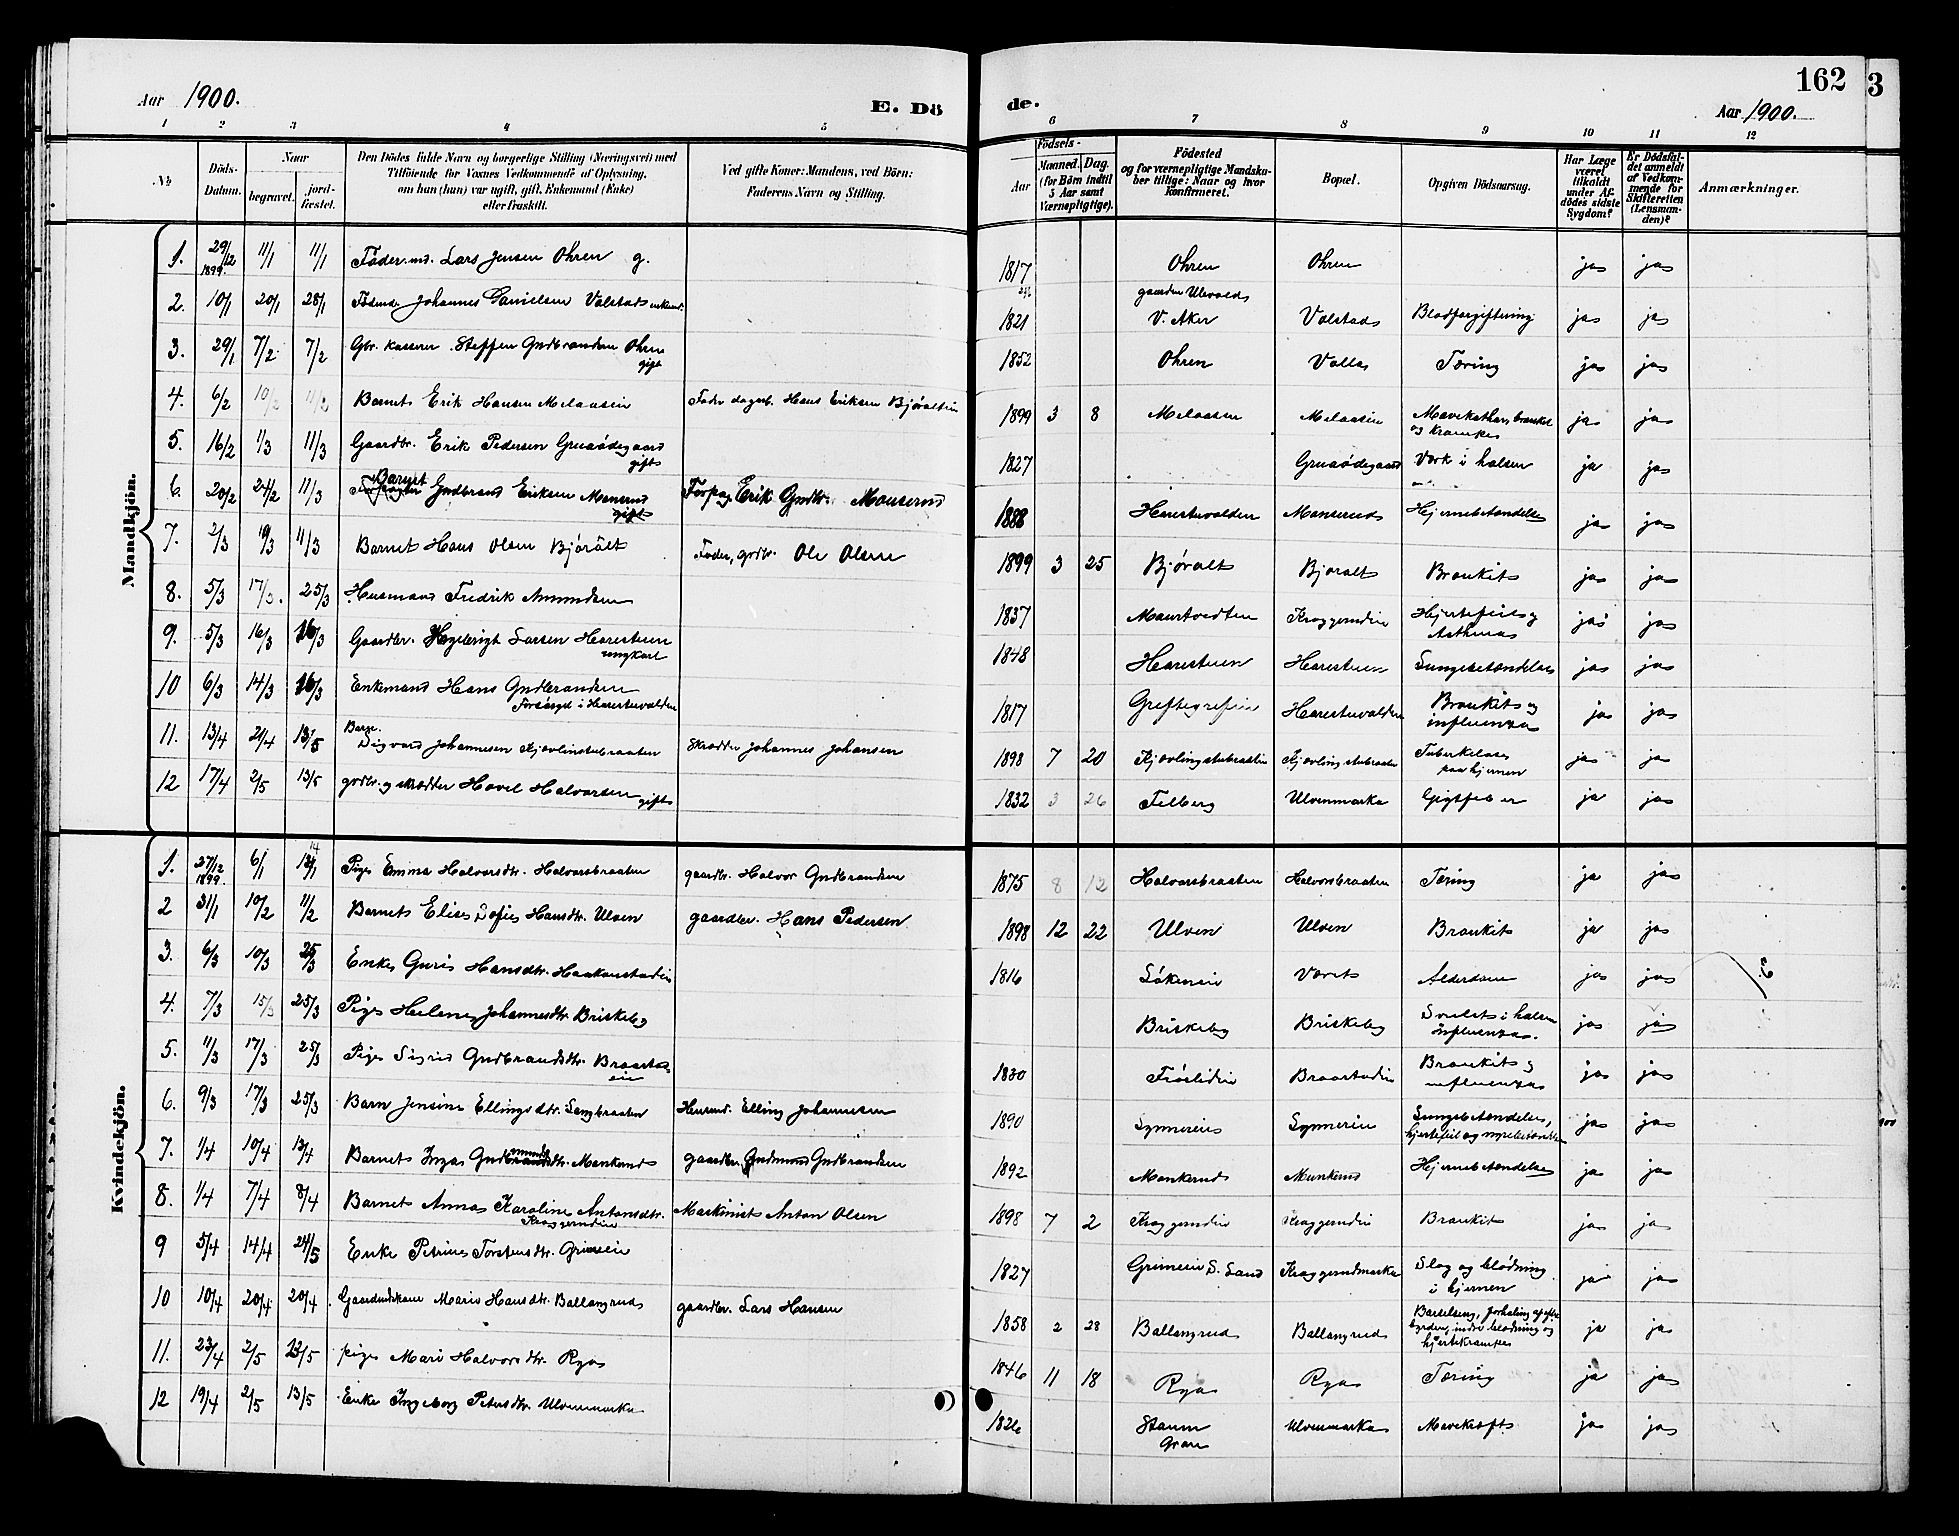 Aar 1900.
E. Dö
de.
162
3
Aar 1900.
1 2 3 4 5 6 7 8 9 10 11 12
No
Döds-
Datum.
Naar
begravet.
jord-
fæstet.
Den Dödes fulde Navn og borgerlige Stilling (Næringsvei) med
Tilföiende for Voxnes Vedkommende af Oplysning,
om han (hun) var ugift, gift, Enkemand (Enke)
eller fraskilt.
Ved gifte Koner: Mandens, ved Börn:
Faderens Navn og Stilling.
Födsels-
Aar
Maaned.
Dag.
(for Börn indtil
5 Aar samt
Værnepligtige).
Födested
og for værnepligtige Mandska-
ber tillige: Naar og hvor
konfirmeret.
Bopæl.
Opgiven Dödsaarsag.
Har Læge
været
tilkaldt
under Af-
dödes sidste
Sygdom?
Er Dödsfal-
det anmeldt
af Vedkom-
mende for
Skifteretten
(Lensman-
den)?
Anmærkninger.
Mandkjön.
1. 29/12 1899. 11/1 11/1 Lars Jensen Ohren g. 1817 Ohren Ohren ja ja
2. 10/1 20/1 28/1 Johannes Danielsen Valstad enkemd. 1821 gaarden Ulevold V. Aker Valstad Blodforgiftning ja ja
3. 29/1 7/2 7/2 Gbr. kasserer Steffen Gudbrandsen Ohren gift 1852 Ohren Valla Tæring ja ja
4. 6/2 10/2 11/2 Barnet Erik Hansen Melaaseie Fader dagarb. Hans Eriksen Bjøralteie 1899 3 8 Melaasen Melaaseie Mavekathar, bronkit og krampe ja ja
5. 16/2 1/3 11/3 Gaardbr. Erik Pedersen Gruaødegaard gift 1827 Gruaødegaard Værk i halsen ja ja
6. 20/2 24/2 11/3 Barnet Gudbrand Eriksen Monserud gift Forpag. Erik Gudbr. Monserud 1888 Harestuvalden Monserud Hjernebetændelse ja ja
7. 2/3 10/3 11/3 Barnet Hans Olsen Bjøralt Fader, grdbr. Ole Olsen 1899 3 25 Bjøralt Bjøralt Bronkit ja ja
8. 5/3 17/3. 25/3 Husmand Fredrik Amundsen 1837 Maurtvedten Kraggerudeie Hjertefeil og Asthma ja ja
9. 5/3 16/3 16/3 Gaardbr. Larsen Harestuen ungkarl 1848 Harestuen Harestuen Lungebetændelse ja ja
10 6/3 14/3 16/3 Enkemand Hans Gudbrandsen forsørget i Harestuvalden 1817 Greftegrefseie Harestuvalden Bronkit og influenza ja ja
11. 13/4 21/4 13/5 Barn. Sigvard Johannesen Kjøvlingstubraaten Skrædder Johannes Johansen 1898 7 20 Kjøvlingstubraaten Kjøvlingstubraaten Tuberkelose paa hjernen ja ja
12 17/4 2/5 13/5 grdbr. og skrædder Hovel Halvorsen gift 1832 3 26 Felberg Ulvenmarka Gigtfeber ja ja
Kvindekjön.
1. 27/12 1899. 6/1 14/1 Pige Emma Halvorsdtr. Halvorsbraaten gaardbr. Halvor Gudbrandsen 1875 8 12 Halvorsbraaten Halvorsbraaten Tæring ja ja
2 31/1 10/2 11/2 Barnet Elise Sofie Hansdtr. Ulven gaardbr. Hans Pedersen 1898 12 22 Ulven Ulven Bronkit ja ja
3. 6/3 10/3 25/3 Enke Guri Hansdtr. Haakenstadeie 1816 Søkeneie Voret Alderdom ja ja
4. 7/3 15/3 25/3 Pige Helene Johannesdtr. Briskeby Briskeby Briskeby Svulst i halsen influenza. ja ja
5. 11/3 17/3 25/3 Pige Sigrid Gudbrandsdtr. Braastadeie 1830 Frøslideie Braastadeie Bronkit og influenza ja ja
6. 9/3 17/3 25/3 Barn Jensine Ellingsdtr. Langbraaten Husmd. Elling Johannesen 1890 Synnereie Synnereie Lungebetændelse, hjertefeil og nyrebetændelse ja ja
7. 1/4 10/4 13/4 Barnet Inga Gudmundsdtr. Monkerud gaardbr. Gudmund Gudbrandsen 1892 Monkerud Munkerud Hjernebetændelse ja ja
8. 1/4 7/4 8/4 Barnet Anna Karoline Antonsdtr. Kraggerudeie Maskinist Anton Olsen 1898 7 2 Kraggerudeie Kraggerudeie Bronkit ja ja
9 5/4 14/4 24/5 Enke Petrine Torstensdtr. Grimeie 1827 Grimeie S. Land Kraggerudmarka Slag og blødning i hjernen ja ja
10 10/4 20/4 20/4 Gaardmandskone Marie Hansdtr. Ballangrud gaardbr. Lars Hansen 1858 2 28 Ballangrud Ballangrud Barselseng, forhaling af efterbyrden, indre blødning og hjertekrampe ja ja
11. 23/4 2/5 13/5 pige Mari Halvorsdtr. Rya 1846 11 18 Rya Rya Tæring ja ja
12 19/4 2/5 13/5 Enke Ingeborg Petersdtr. Ulvenmarka 1826 Staum Gran Ulvenmarka Mavekræft ja ja